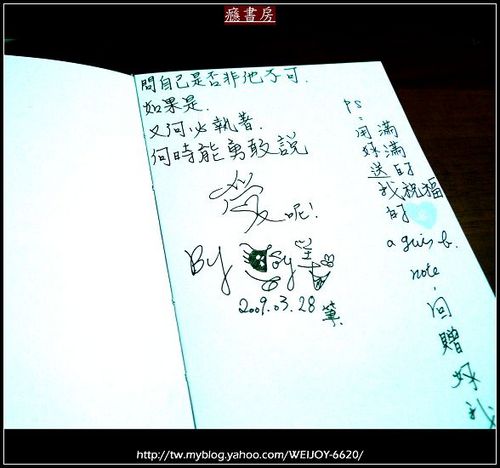 癮書房
問自己是否非他不可.
如果是.
又何必執著.
何時能勇敢說
愛呢!
By
2009.03.28 筆.
PS
:
用滿
滿
送的
我祝福
的
note
,
回
贈
我
http://tw.myblog.yahoo.com/WEIJOY-6620/